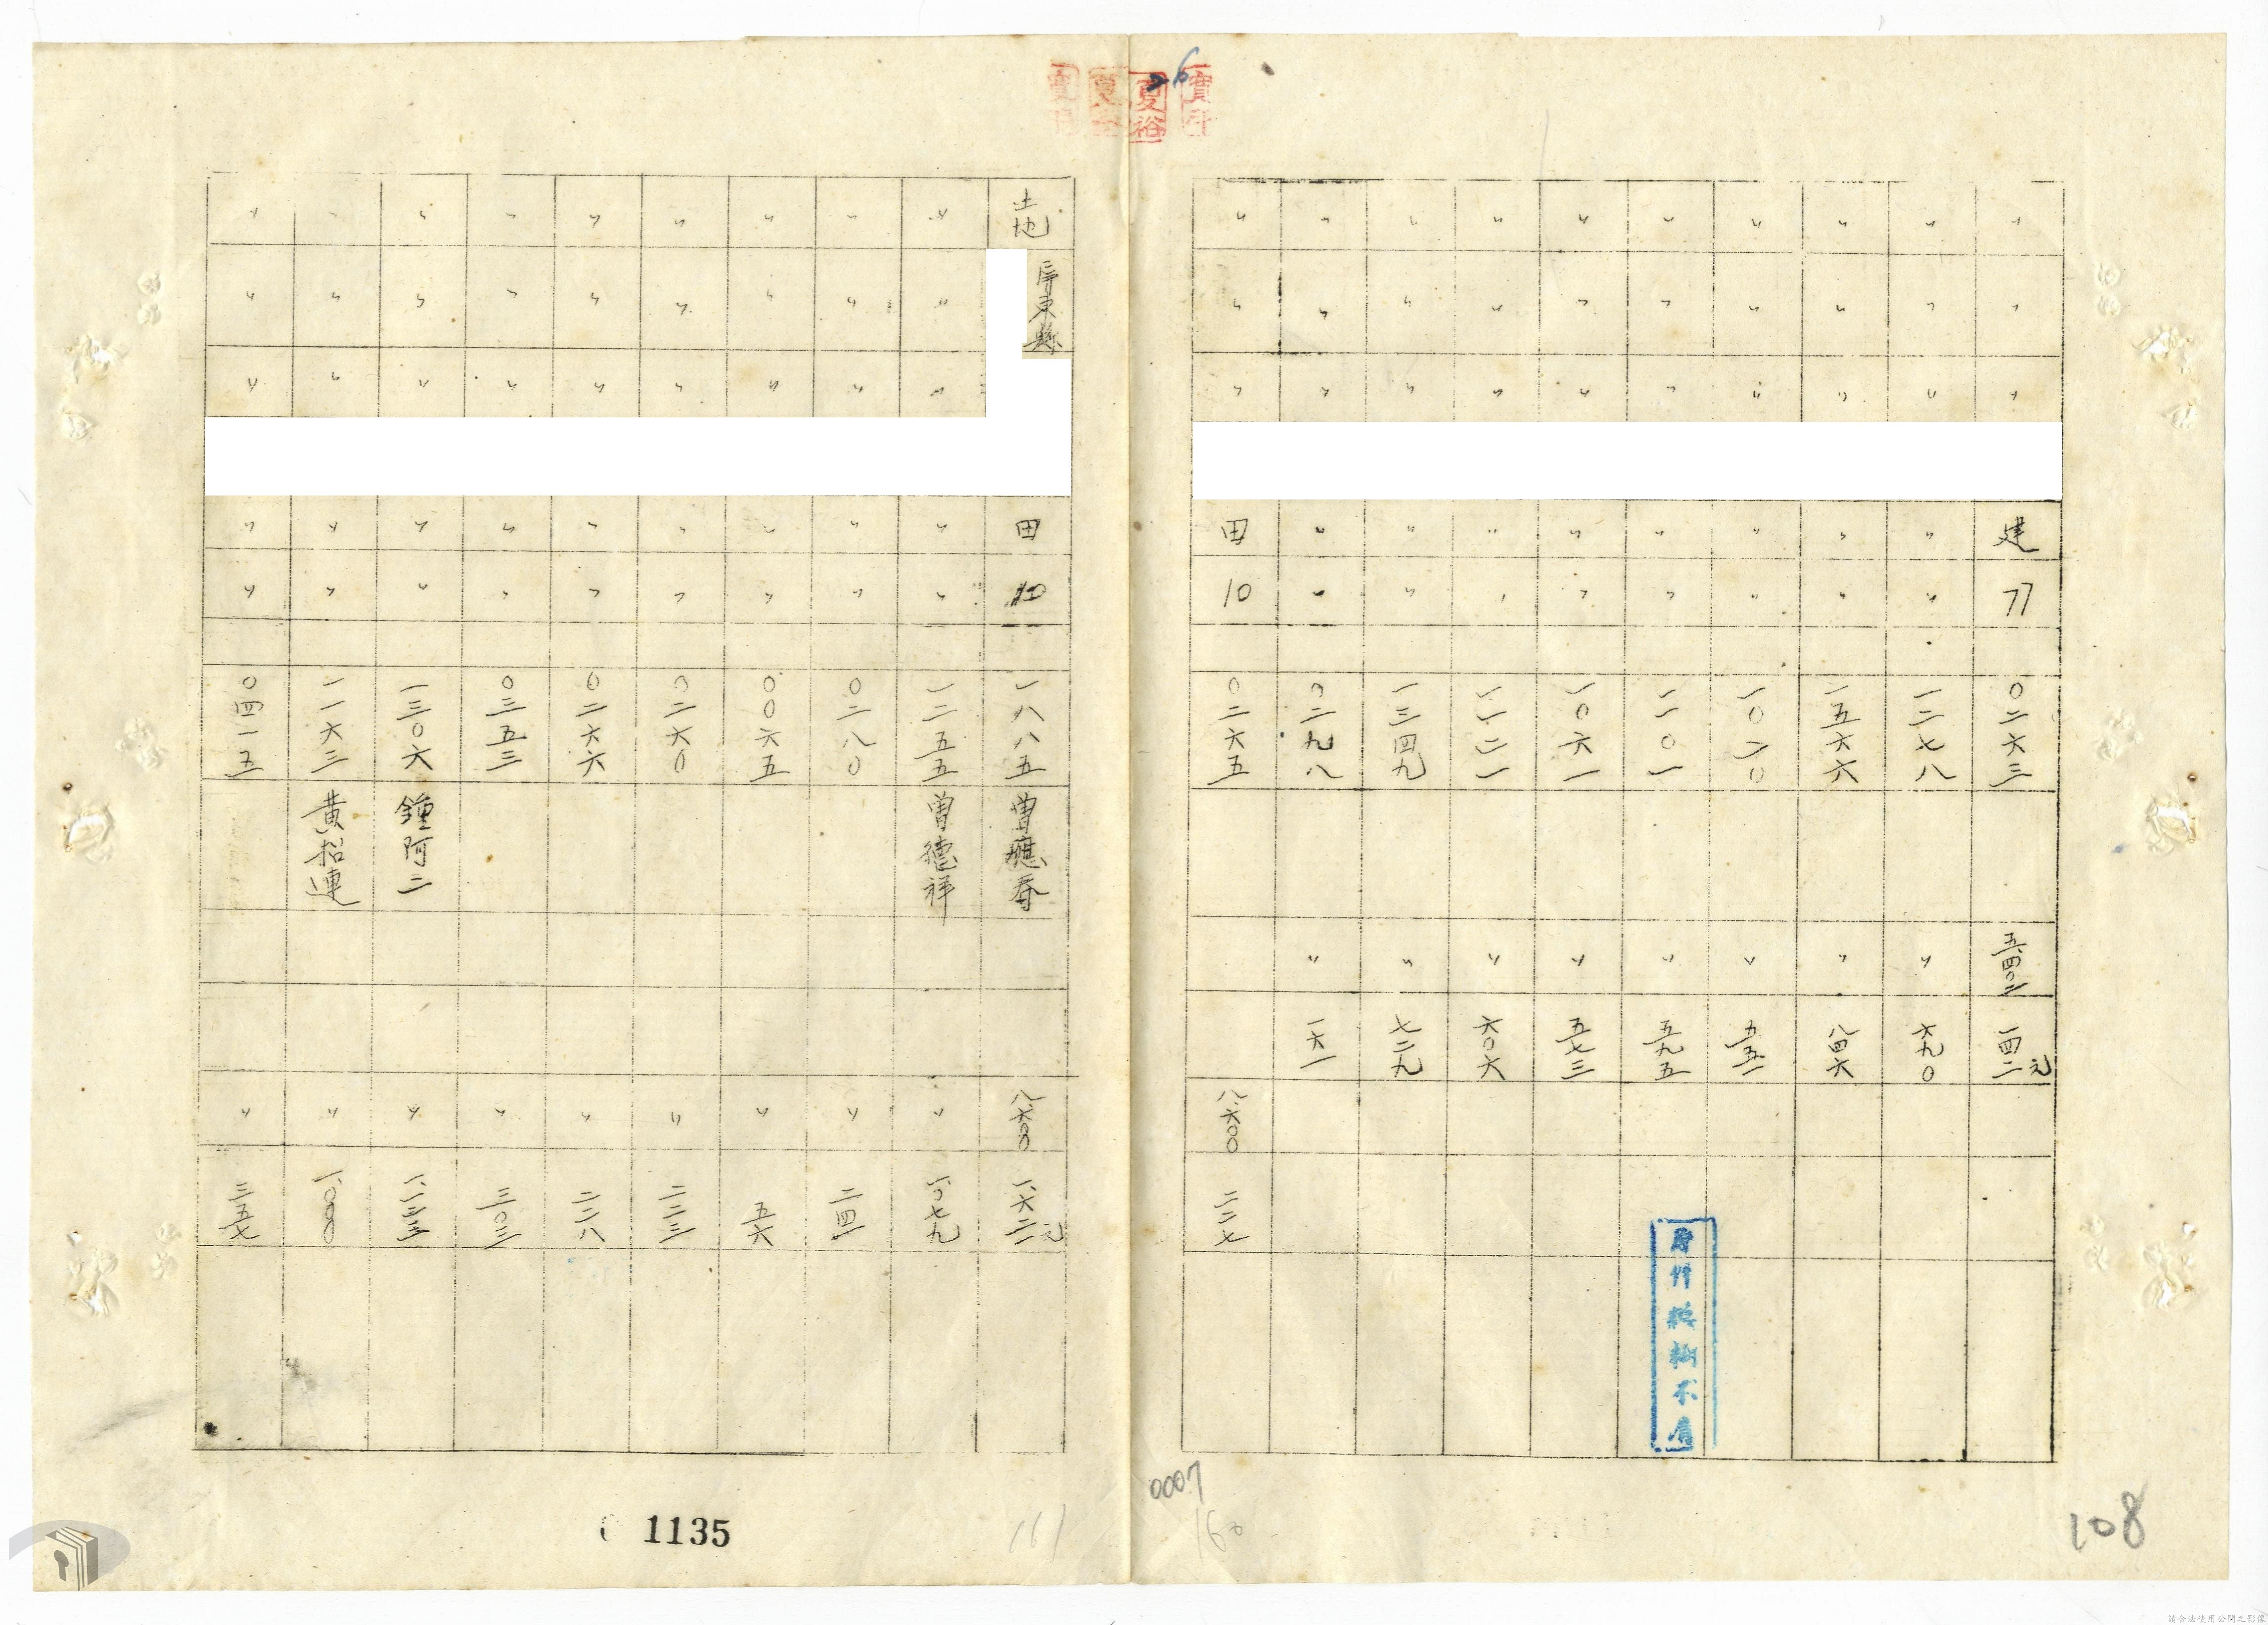 夏裕
26
〃 〃 〃 建 77 〇二六三 五四〇二 一四二元
〃 〃 〃 〃 〃 一二七八 〃 六九〇
〃 〃 〃 〃 〃 一五六六 〃 八四六
〃 〃 〃 〃 〃 一〇二〇 〃 五五一
〃 〃 〃 〃 〃 一一〇一 〃 五九五
〃 〃 〃 〃 〃 一〇六一 〃 五七三
〃 〃 〃 〃 〃 一一二一 〃 六〇六
〃 〃 〃 〃 〃 一三四九 〃 七二九
〃 〃 〃 〃 〃 〇二九八 〃 一六一
〃 〃 〃 田 10 〇二六五 八六〇〇 二二七
0007
160
108
土地 屏東縣 田 10 一八八五 曾應春 八六〇〇 一、六二一元
〃 〃 〃 〃 〃 一二五五 曾德祥 〃 一、〇七九
〃 〃 〃 〃 〃 〇二八〇 〃 二四一
〃 〃 〃 〃 〃 〇〇六五 〃 五六
〃 〃 〃 〃 〃 〇二六〇 〃 二二三
〃 〃 〃 〃 〃 〇二六六 〃 二二八
〃 〃 〃 〃 〃 〇三五三 〃 三〇三
〃 〃 〃 〃 〃 一三〇六 鍾阿二 〃 一、一二三
〃 〃 〃 〃 〃 一一六三 黃招連 〃 一、〇〇〇
〃 〃 〃 〃 〃 〇四一五 〃 三五七
1135
161
請合法使用公開之影像